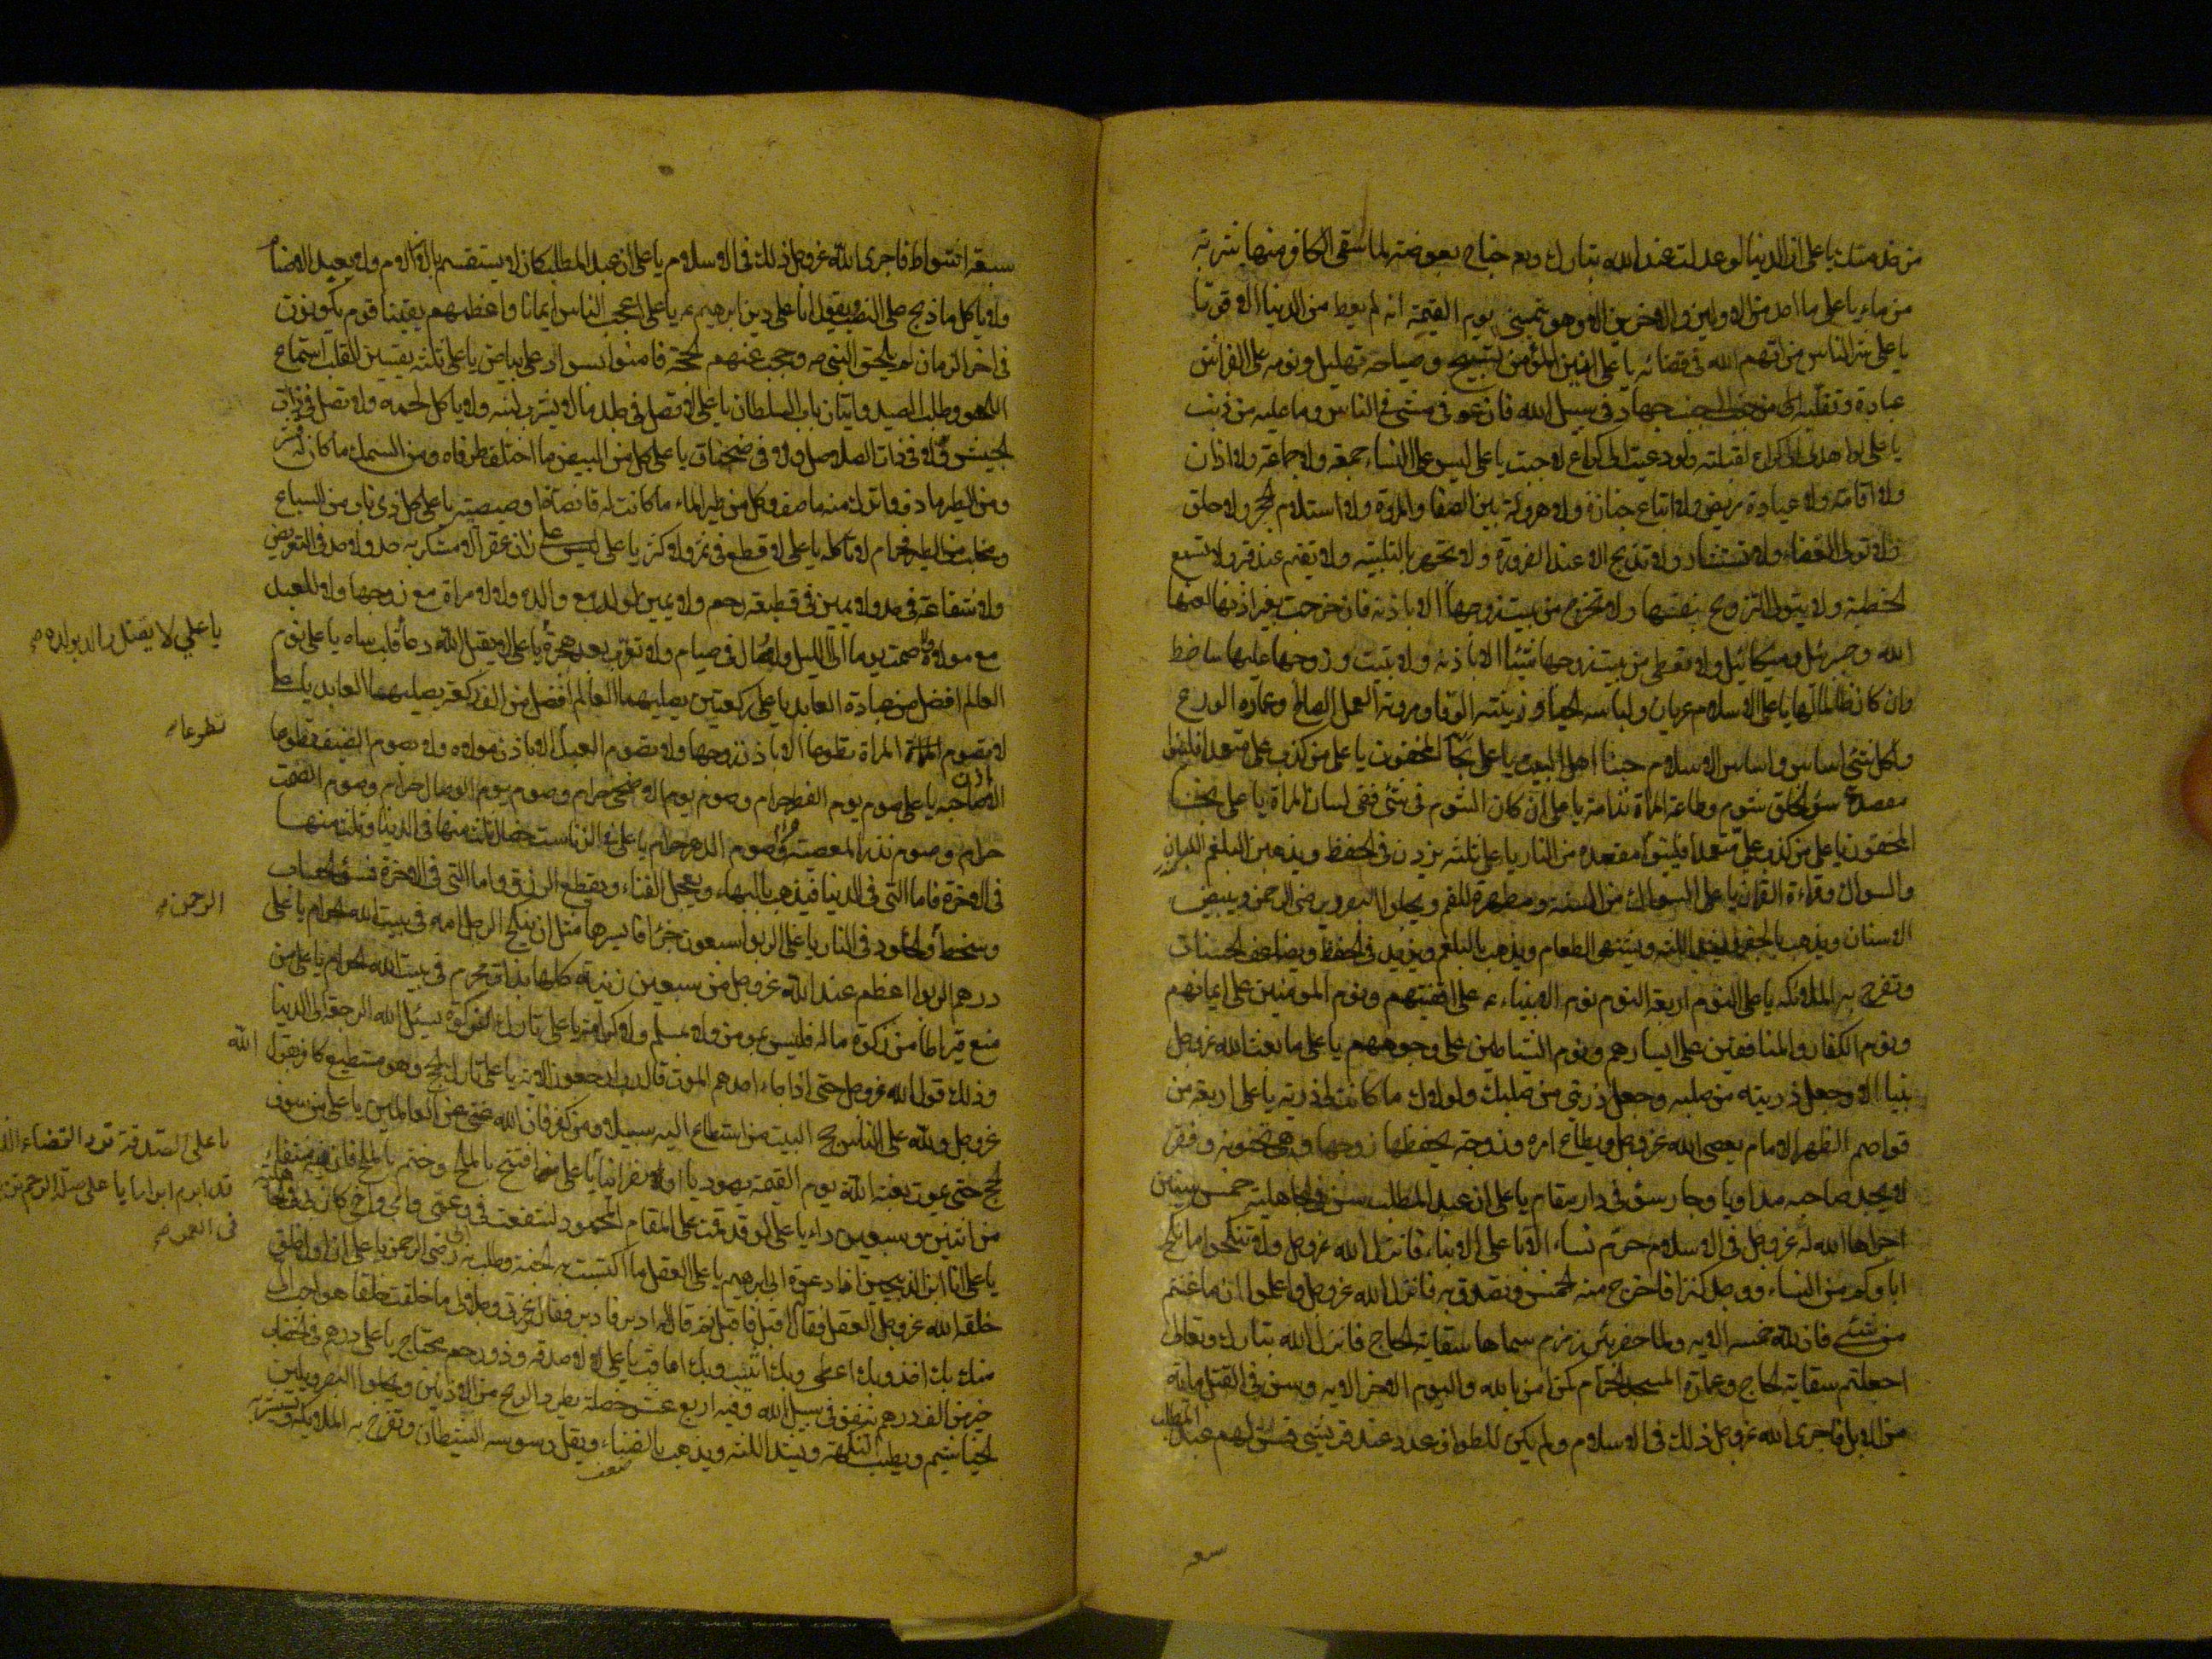 من خدمتك يا علي ان الدنيا لو عدلت عند الله تبارك وتع جناح بعوضة لما سقى الكافر منها شربة
من ماء يا علي ما احد من الاولين والاخرين الا وهو يتمنى يوم القيمة انه لم يعط من الدنيا الا قوتا
يا علي شر الناس من اتهم الله في قضائه يا علي انين المؤمن تسبيح وصياحه تهليل ونومه على الفراش
عبادة وتقلبه من جنب الى جنب جهاد في سبيل الله فان عوفي مشى في الناس وما عليه من ذنب
يا علي لو اهدي الي كراع لقبلته ولو دعيت الى كراع لاجبت يا علي ليس على النساء جمعة ولا جماعة ولا اذان
ولا اقامة ولا عيادة مريض ولا اتباع جنازة ولا هرولة بين الصفا والمروة ولا استلام الحجر ولا حلق
ولا تولى القضاء ولا تستشار ولا تذبح الا عند الضرورة ولا تجهر بالتلبية ولا تقيم عند قبر ولا تسمع
الخطبة ولا يتولى التزويج بنفسها ولا تخرج من بيت زوجها الا باذنه فان خرجت بغير اذنه لعنها
الله وجبرئيل وميكائيل ولا تعطي من بيت زوجها شيئا الا باذنه ولا تبيت وزوجها عليها ساخط
وان كان ظالما لها يا علي الاسلام عريان ولباسه الحياء وزينته الوقا ومروته العمل الصالح وعماده الورع
ولكل شئ اساس واساس الاسلام حبنا اهل البيت يا علي نجا المخفون يا علي من كذب علي متعمدا فليتبوا
مقعده سوء الخلق شوم وطاعة المراة ندامة يا علي ان كان الشوم في شئ ففي لسان المراة يا علي نجى
المخفون يا علي من كذب علي متعمدا فليتبوا مقعده من النار يا علي ثلثة يزدن في الحفظ ويذهبن البلغم اللبان
والسواك وقراءة القران يا علي السواك من السنة ومطهرة للفم ويجلو البصر ويرضي الرحمن ويبيض
الاسنان ويذهب بالحفر ويشد اللثة ويشهي الطعام ويذهب بالبلغم ويزيد في الحفظ ويضاعف الحسنات
وتفرح به الملائكة يا علي النوم اربعة النوم نوم الانبياء ع على اقفيتهم ونوم المومنين على ايمانهم
ونوم الكفار والمنافقين على ايسارهم ونوم الشياطين على وجوههم يا علي ما بعث الله عزوجل
نبيا الا وجعل ذريته من صلبه وجعل ذريتي من صلبك ولولاك ما كانت لي ذرية يا علي اربعة من
قواصم الظهر الامام يعصي الله عزوجل ويطاع امره وزوجة يحفظها زوجها وهي تخونه وفقر
لا يجد صاحبه مداويا وجار سوء في دار مقام يا علي ان عبد المطلب سن في الجاهلية خمس سنين
اجراها الله له عزوجل في الاسلام حرم نساء الابا على الابناء فانزل الله عزوجل ولا تنكحوا ما نكح
اباوكم من النساء ووجد كنزا فاخرج منه الخمس وتصدق به فانزل الله عزوجل واعلموا انما غنمتم
من شئ فان لله خمسه الايه ولما حفر بئر زمزم سماها سقاية الحاج فانزل الله تبارك وتعالى
اجعلتم سقاية الحاج وعمارة المسجد الحرام كمن امن بالله واليوم الاخر الايه وسن في القتل مائة
من الابل فاجرى الله عزوجل ذلك في الاسلام ولم يكن للطواف عدد عند قريش فسن لهم عبد المطلب
سبعة اشواط فاجرى الله عزوجل ذلك في الاسلام يا علي ان عبد المطلب كان لا يستقسم بالازلام ولا يعبد الاصنام
ولا ياكل ما ذبح على النصب ويقول انا على دين ابرهيم ع يا علي اعجب الناس ايمانا واعظمهم يقينا قوم يكونون
في اخر الزمان لم يلحقوا النبي ص وحجب عنهم الحجة فامنوا بسواد على بياض يا علي ثلثة يقسين القلب استماع
اللهو وطلب الصيد واتيان باب السلطان يا علي لا تصل في جلد ما لا يشرب لبنه ولا ياكل لحمه ولا تصل في ذات
الجيش ولا في ذات الصلاصل ولا في ضجنان يا علي كل من البيض ما اختلف طرفاه ومن السمك ما كان له قشر
ومن الطير ما دف واترك منه ما صف وكل من طير الماء ما كانت له قانصة او صيصية يا علي كل ذي ناب من السباع
ومخلب من الطير فحرام لا تاكله يا علي لا قطع في ثمر ولا كثر يا علي ليس على زان عقر لا حد في التعريض
ولا شفاعة في حد ولا يمين في قطيعة رحم ولا يمين لولد مع والده ولا لامراة مع زوجها ولا للعبد
مع مولاه ولا صمت يوما الى الليل ولا وصال في صيام ولا تعرب بعد هجرة يا علي لا يقبل الله دعاء قلب ساه يا علي نوم
يا علي لا يقتل والد بولده صح
العالم افضل من عبادة العابد يا علي ركعتين يصليهما العالم افضل من الف ركعة يصليها العابد يا علي
لا تصوم المراة تطوعا الا باذن زوجها ولا يصوم العبد الا باذن مولاه ولا يصوم الضيف تطوعا
تطوعا صح
الا باذن صاحبه يا علي صوم يوم الفطر حرام وصوم يوم الاضحى حرام وصوم يوم الوصال حرام وصوم الصمت
حرام وصوم نذر المعصية حرام وصوم الدهر حرام يا علي في الزنا ست خصال ثلث منها في الدنيا وثلث منها
في الاخرة فاما التي في الدنيا فيذهب بالبهاء ويعجل الفناء ويقطع الرزق واما التي في الاخرة فسوء الحساب
وسخط والخلود في النار يا علي الربوا سبعون جزءا فايسرها مثل ان ينكح الرجل امه في بيت الله الحرام يا علي
الرحمن صح
درهم الربوا اعظم عند الله عزوجل من سبعين زنية كلها بذات محرم في بيت الله الحرام يا علي من
منع قيراطا من زكوة ماله فليس بمومن ولا مسلم ولا كرامة يا علي تارك الزكوة يسئل الله الرجعة الى الدنيا
وذلك قول الله عزوجل حتى اذا جاء احدهم الموت قال رب ارجعون الايه يا علي تارك الحج وهو مستطيع كافر يقول الله
عزوجل ولله على الناس حج البيت من استطاع اليه سبيلا ومن كفر فان الله غني عن العالمين يا علي من سوف
الحج حتى يموت بعثه الله يوم القيمة يهوديا او نصرانيا يا علي افتتح بالملح وختم بالملح فان فيه شفاء
يا علي الصدقة ترد القضاء الذي
قد ابرم ابراما يا علي صلة الرحم تزيد
في العمر صح
من اثنين وسبعين داء يا علي لو قد قمت على المقام المحمود لشفعت في وعمي وامي واخي كان لي في الجاهلية
يا علي انا ابن الذبيحين انا دعوة ابي ابرهيم يا علي العقل ما اكتسبت به الجنة وطلب به رضى الرحمن يا علي ان اول خلق
خلقه الله عزوجل العقل فقال له اقبل فاقبل ثم قال له ادبر فادبر فقال وعزتي وجلالي ما خلقت خلقا هو احب الي
منك بك اخذ وبك اعطي وبك اثيب وبك اعاقب يا علي لا صدقة وذو رحم محتاج يا علي درهم في الخضاب
خير من الف درهم ينفق في سبيل الله وفيه اربع عشر خصلة يطرد الريح من الاذنين ويجلوا البصر ويلين
الخياشيم ويطيب النكهة ويشد اللثة ويذهب بالضناء ويقل وسوسة الشيطان وتفرح به الملائكة ويستبشر به